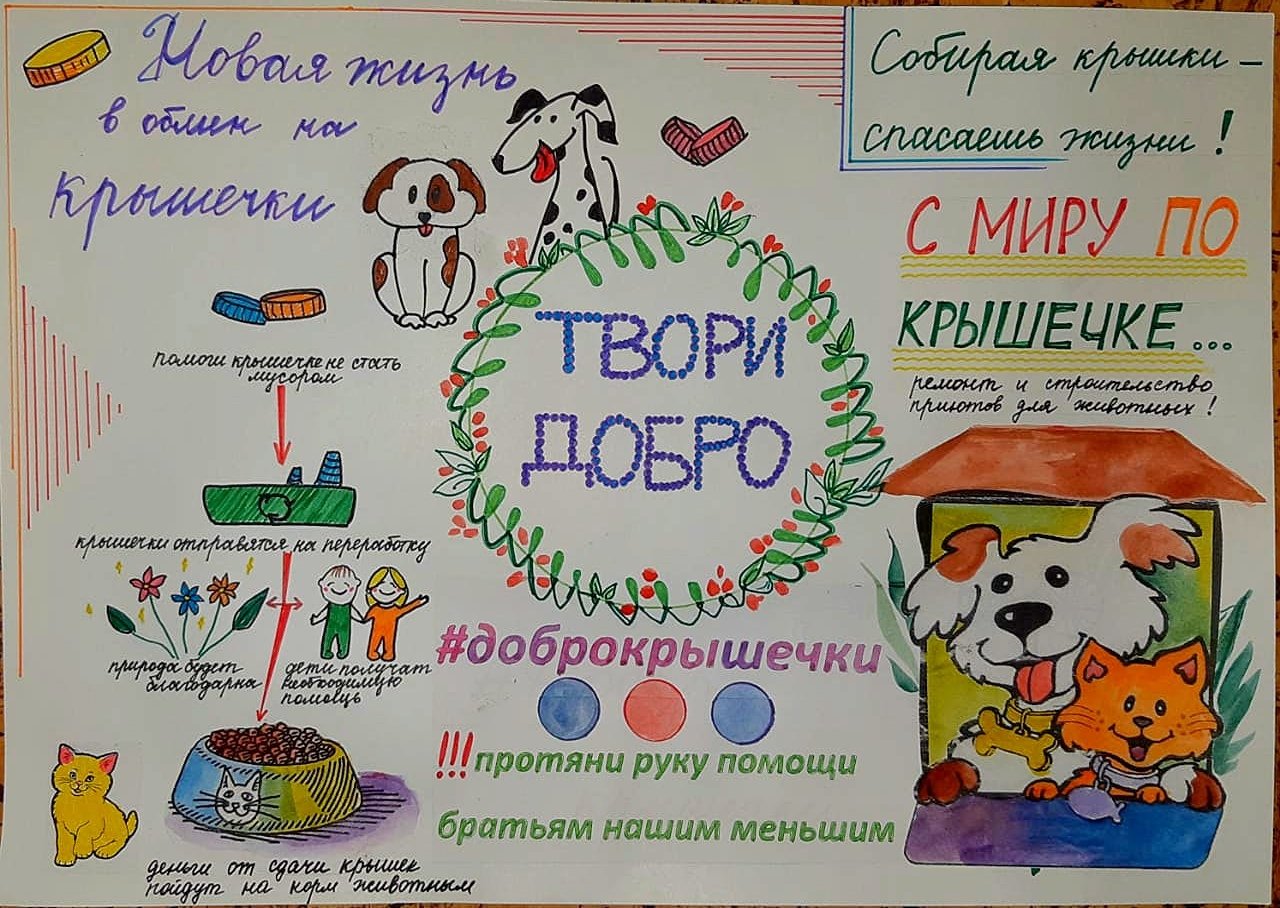 Новая жизнь
в обмен на
крышечки
Собирая крышки –
спасаешь жизни!
С МИРУ ПО
КРЫШЕЧКЕ...
ремонт и строительство
приютов для животных!
ТВОРИ
ДОБРО
помоги крышечке не стать
мусором
крышечки отправятся на переработку
природа будет
благодарна
дети получат
необходимую
помощь
деньги от сдачи крышек
пойдут на корм животным
#доброкрышечки
!!! протяни руку помощи
братьям нашим меньшим